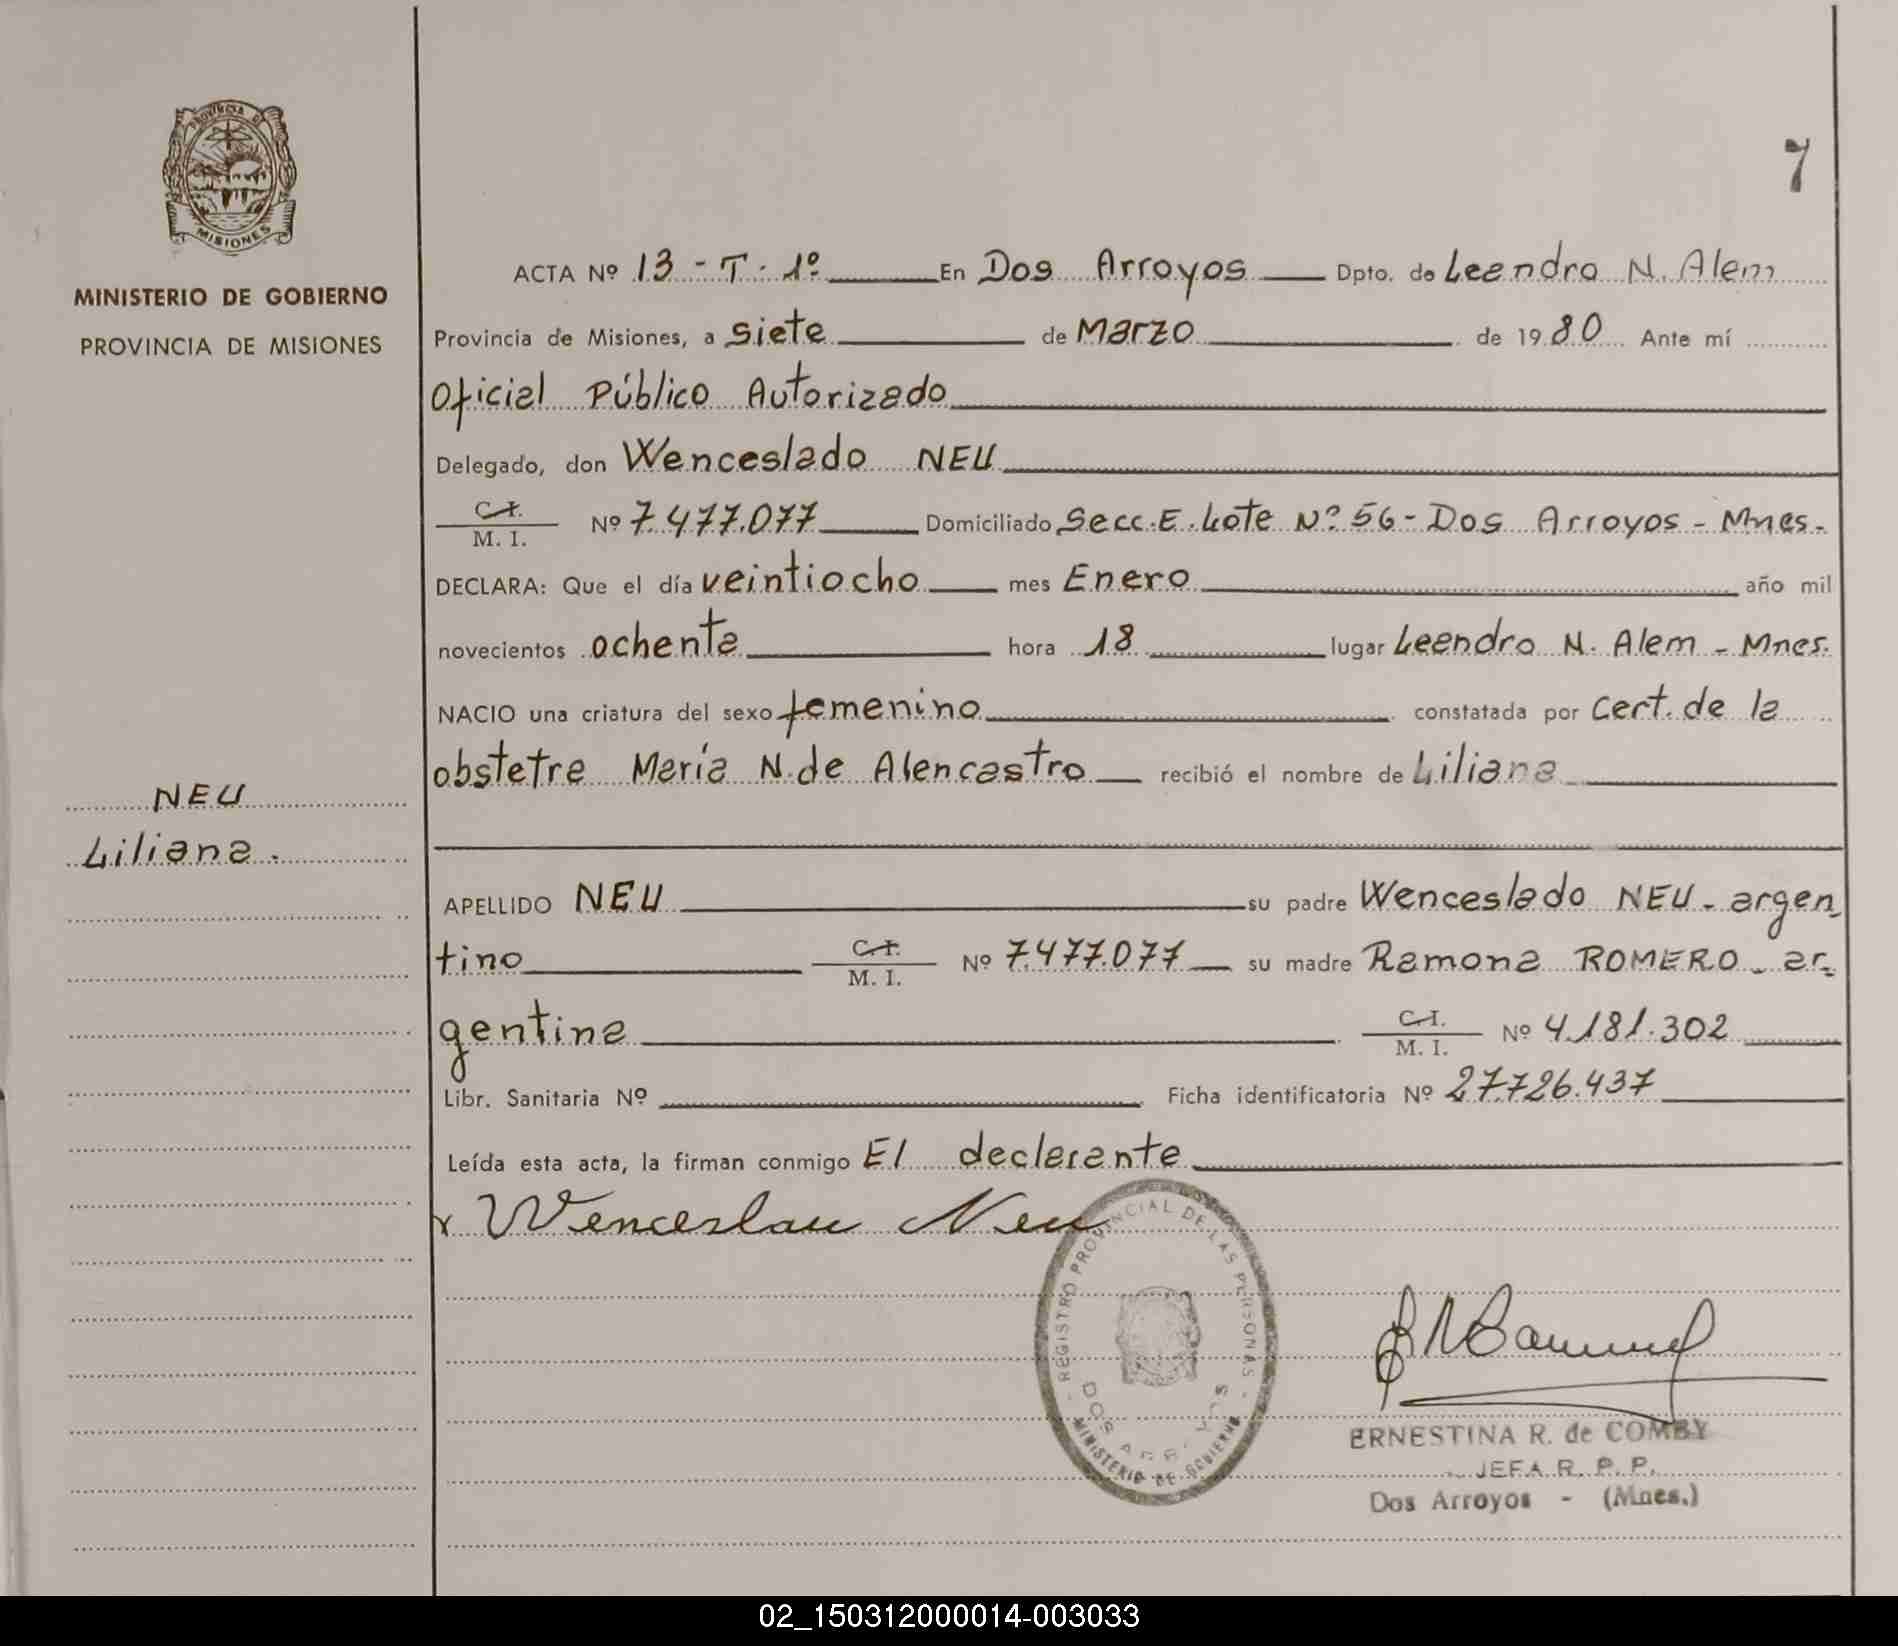 PROVINCIA DE
MISIONES
MINISTERIO DE GOBIERNO
PROVINCIA DE MISIONES
NEU
Liliana.
7
ACTA Nº 13 - T. 1º En Dos Arroyos Dpto. de Leandro N. Alem
Provincia de Misiones, a siete de Marzo de 1980 Ante mí
Oficial Público Autorizado
Delegado, don Wenceslado NEU
C.I.
M. I. Nº 7.477.077 Domiciliado Secc. E. Lote Nº 56 - Dos Arroyos - Mnes.
DECLARA: Que el día veintiocho mes Enero año mil
novecientos ochenta hora 18 lugar Leandro N. Alem - Mnes.
NACIO una criatura del sexo femenino constatada por cert. de la
obstetra María N. de Alencastro recibió el nombre de Liliana
APELLIDO NEU su padre Wenceslado NEU - argen
tino C.I.
M. I. Nº 7.477.077 su madre Ramona ROMERO - ar-
gentina C.I.
M. I. Nº 4.181.302
Libr. Sanitaria Nº Ficha identificatoria Nº 27.726.437
Leída esta acta, la firman conmigo El declarante
x Wenceslau Neu
- REGISTRO PROVINCIAL DE LAS PERSONAS -
DOS ARROYOS
MINISTERIO DE GOBIERNO
ERNESTINA R. de COMBY
JEFA R. P. P.
Dos Arroyos - (Mnes.)
02_150312000014-003033